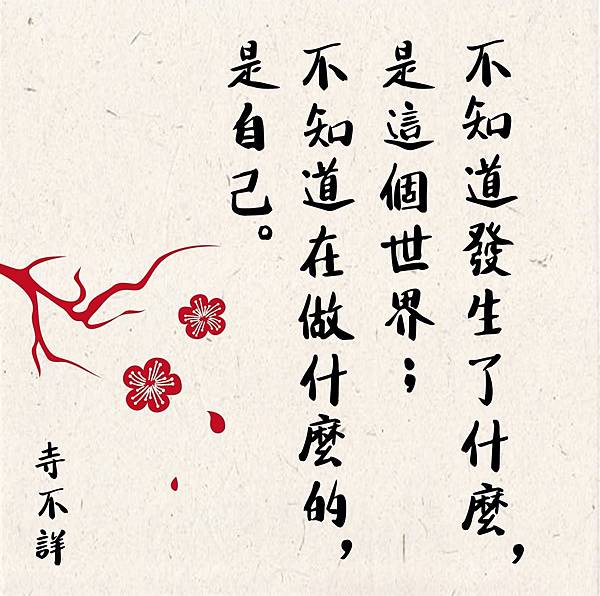 不知道發生了什麼，
是這個世界；
不知道在做什麼的，
是自己。
寺不詳